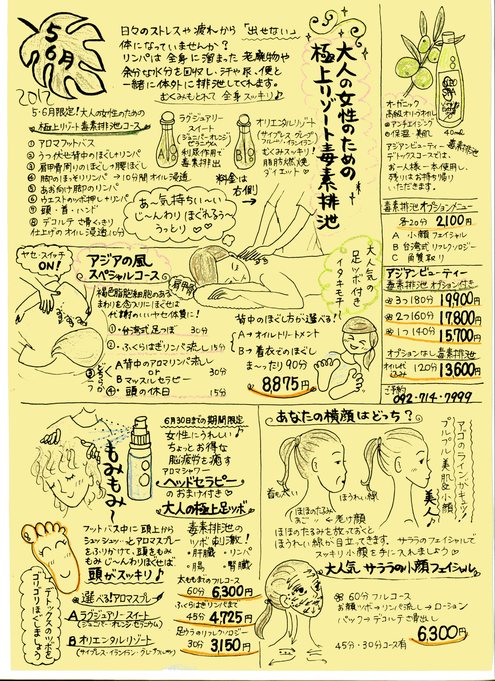 5・6月
2012
日々のストレスや疲れから「出せない」
体になっていませんか？
リンパは全身に溜まった老廃物や
余分な水分を回収し、汗や尿、便と
一緒に体外に排出してくれます。
むくみもとれて全身スッキリ♪
大人の女性のための
極上リゾート毒素排池
5・6月限定！大人の女性のための
極上リゾート毒素排池コース
① アロマフットバス
② うつ伏せ背中のほぐし+リンパ
③ 肩甲骨周りのほぐし+腰ほぐし
④ 脚のほそりリンパ → 10分間オイル浸透
⑤ あお向け脚のリンパ
⑥ ウエストのツボ押し+リンパ
⑦ 頭・首・ハンド
⑧ デコルテさ骨くっきり
仕上げのオイル浸透10分
ラグジュアリー
スイート
(ジュニパー・オレンジ
ゼラニウム)
利尿作用で
毒素排出
オリエンタルリゾート
(サイプレス・グレープ
フルーツ・イランイラン)
むくみスッキリ!
脂肪燃焼
ダイエット♡
料金は
右側
あ〜気持ちいい〜い
じ〜んわりほぐれるう〜
うっとり♡♡
オーガニック
高級オリーブオイル
アンチエイジング
保湿・美肌
40ml
アジアンビューティー 毒素排池
デトックスコースでは、
お一人様一本使用し、
残りはお持ち帰り
いただきます。
毒素排池オプションメニュー
各20分 2,100円
A 小顔フェイシャル
B 台湾式リフレクソロジー
C 角質取り
アジアンビューティー
毒素排池 オプション付き
3つ 180分 19900円
2つ 160分 17,800円
1つ 140分 15,700円
オプションなし 毒素排池
120分 13600円
ご予約
092-714-7999
ヤセ・スイッチ
ON!
アジアの風
スペシャルコース
肩甲骨
褐色脂肪細胞のある
まわりを念入りにほぐせば
代謝のいいヤセ体質に!
①・台湾式足つぼ 30分
②・ふくらはぎリンパ流し 15分
③
A 背中のアロマリンパ流し
or
B マッスルセラピー
30分
④・頭の休日 15分
大人気の
足ツボ付き
イタキモチ!
背中のほぐし方が選べる!
A→オイルトリートメント
B→着衣でのほぐし
ま〜ったり90分
8875円
もみもみ〜
6月30日までの期間限定
女性にうれしい♪
ちょっとお得な
脳疲労を癒す
アロマシャワー
ヘッドセラピー
のおまけ付き♡
大人の極上足ツボ
フットバス中に頭上から
シュッシュッ〜とアロマスプレー
をふりかけて、頭をもみ
もみ じ〜んわりほぐせば
頭がスッキリ♪
選べる!アロマスプレー
A ラグジュアリースイート
(ジュニパー・オレンジ・ゼラニウム)
B オリエンタルリゾート
(サイプレス・イランイラン・グレープフルーツ)
デトックスのツボを
ゴリゴリほぐしましょう
毒素排池の
ツボ刺激!
・肝臓 ・リンパ
・腸 ・腎臓
太ももまでのフルコース
60分 6,300円
ふくらはぎリンパまで
45分 4,725円
足ウラのリフレクソロジー
30分 3,150円
あなたの横顔はどっち?
首も太い
ほうれい線
ほほのたるみ
あご〃 老け顔
美人♪
アゴのラインがキュッ!
プルプル美肌&小顔
ほほのたるみを放っておくと
ほうれい線が目立ってきます。サララのフェイシャルで
スッキリ小顔を手に入れましょう♡
大人気 サララの小顔フェイシャル
60分フルコース
お顔ツボ→リンパ流し→ローション
パック→デコルテさ骨出し
6,300円
45分・30分コース有